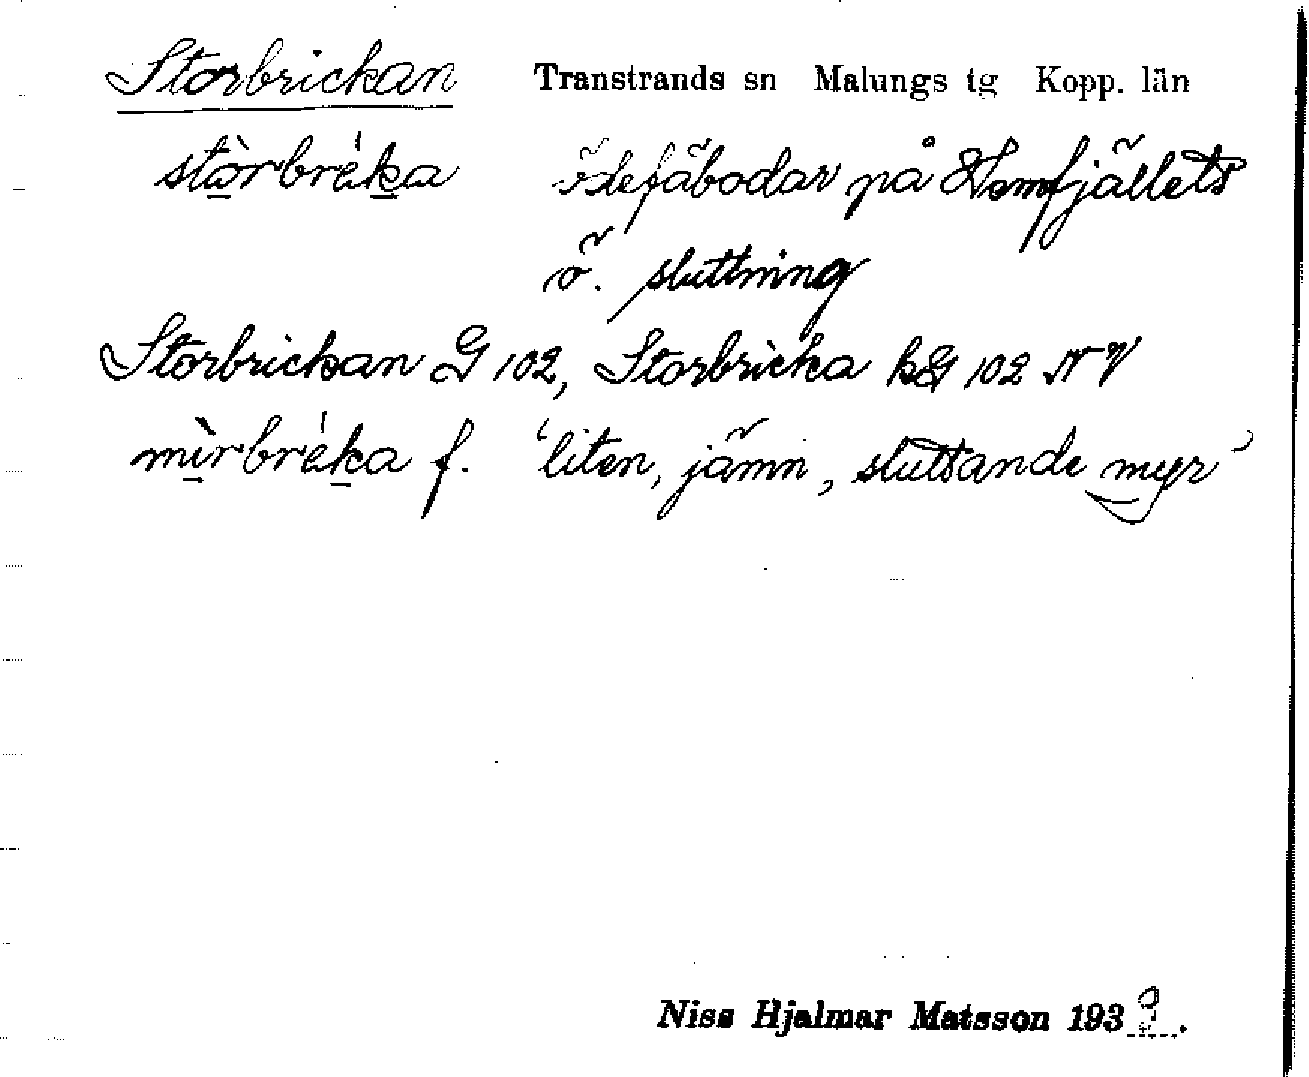 Storbrickan Transtrands sn Malungs tg Kopp. län
stòrbréka ödefäbodar på Hemfjällets
ö. sluttning
Storbrickan G 102, Storbricka k&G 102 NV
mìrbréka f. 'liten, jämn, sluttande myr'
Niss Hjalmar Matsson 193